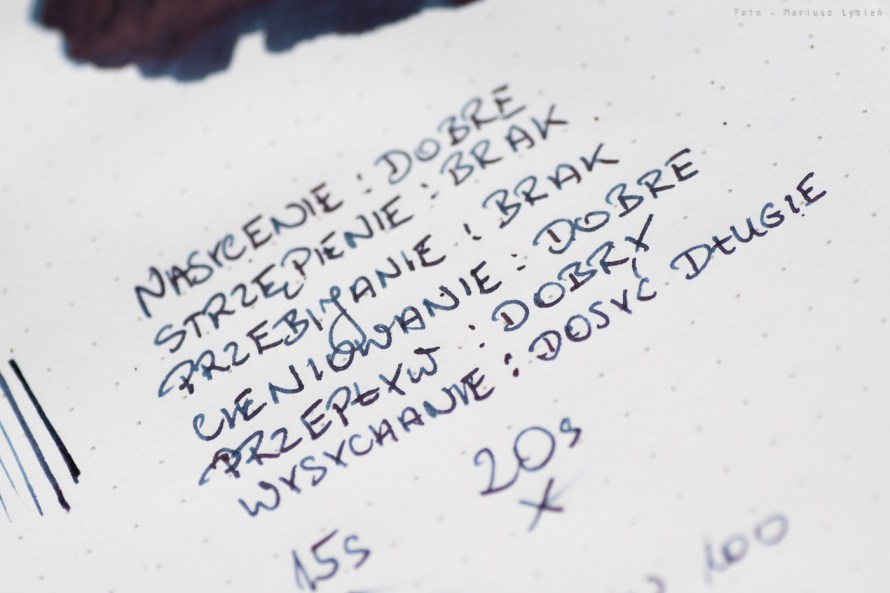 Foto - Mariusz Łysień
NASYCENIE : DOBRE
STRZĘPIENIE : BRAK
PRZEBIJANIE : BRAK
CIENIOWANIE : DOBRE
PRZEPŁYW : DOBRY
WYSYCHANIE : DOSYĆ DŁUGIE
15s 20s
X
100